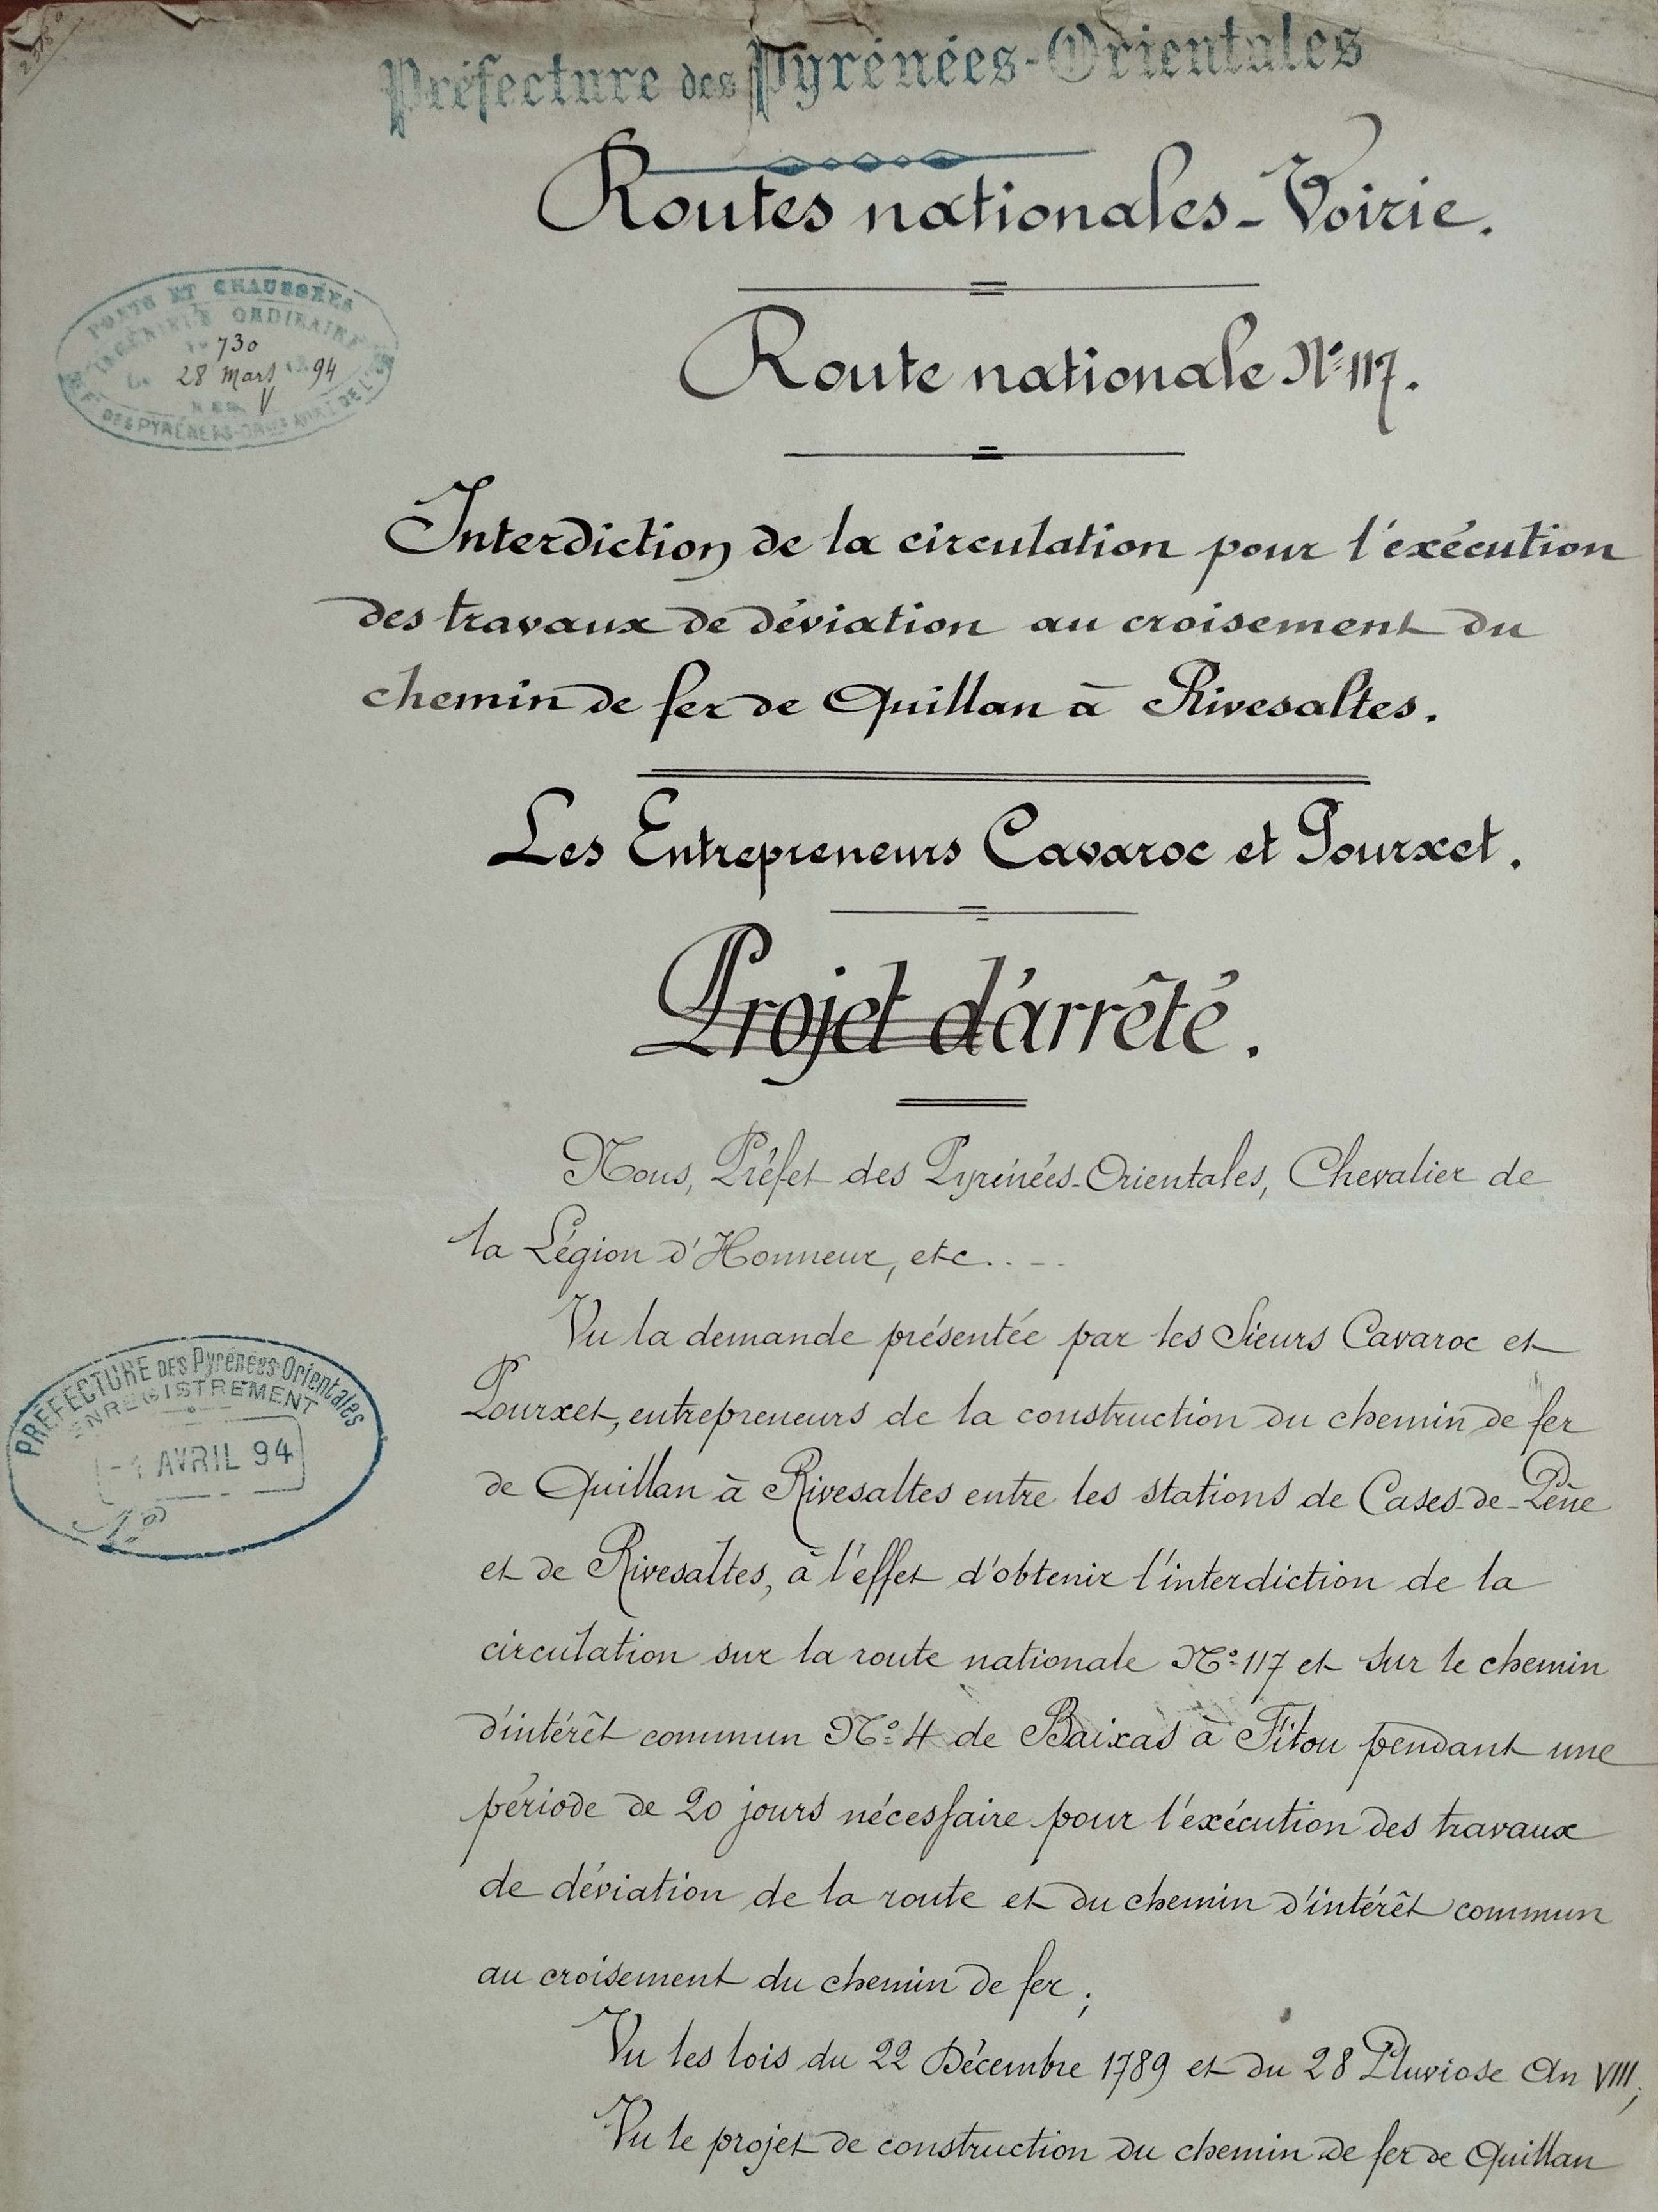 Préfecture des Pyrénées-Orientales
Routes nationales - Voirie.
PONTS ET CHAUSSÉES
INGÉNIEUR ORDINAIRE
730
28 Mars 94
DES PYRÉNÉES-
Route nationale N° 117.
Interdiction de la circulation pour l'exécution
des travaux de déviation au croisement du
chemin de fer de Quillan à Rivesaltes.
Les Entrepreneurs Cavaroc et Pourxet.
Projet d'arrêté.
Nous, Préfet des Pyrénées-Orientales, Chevalier de
la Légion d'Honneur, etc....
Vu la demande présentée par les Sieurs Cavaroc et
Pourxet, entrepreneurs de la construction du chemin de fer
de Quillan à Rivesaltes entre les stations de Cases-de-Pène
et de Rivesaltes, à l'effet d'obtenir l'interdiction de la
circulation sur la route nationale N° 117 et sur le chemin
d'intérêt commun N° 4 de Baixas à Fitou pendant une
période de 20 jours nécessaire pour l'exécution des travaux
de déviation de la route et du chemin d'intérêt commun
au croisement du chemin de fer ;
Vu les lois du 22 Décembre 1789 et du 28 Pluviose An VIII;
Vu le projet de construction du chemin de fer de Quillan
PRÉFECTURE DES Pyrénées-Orientales
ENREGISTREMENT
-1 AVRIL 94
N°